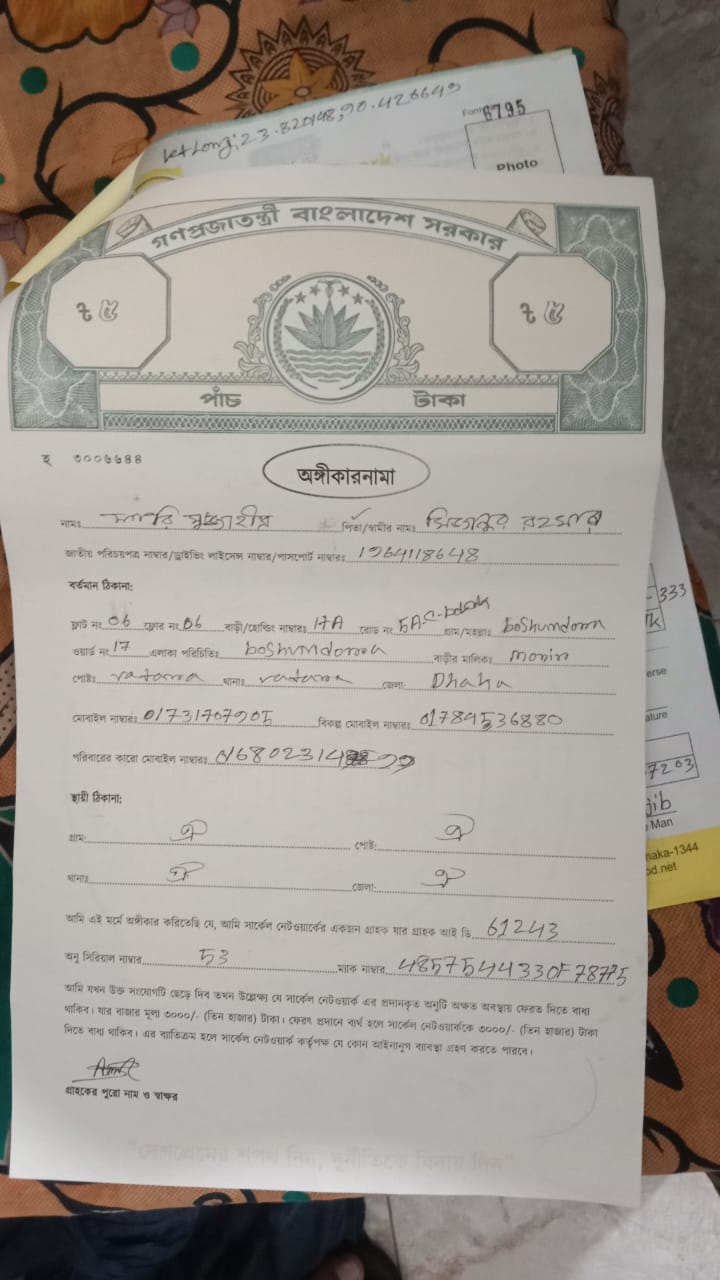 Let Long; 23.820148, 90.426649
Form
6795
Photo
গণপ্রজাতন্ত্রী বাংলাদেশ সরকার
৳ ৫
৳ ৫
পাঁচ টাকা
হ ৩০০৬৬৪৪
অঙ্গীকারনামা
নামঃ পিতা/স্বামীর নামঃ রহমান
জাতীয় পরিচয়পত্র নাম্বার/ড্রাইভিং লাইসেন্স নাম্বার/পাসপোর্ট নাম্বারঃ 1964118648
বর্তমান ঠিকানা:
ফ্লাট নং 06 ফ্লোর নং 06 বাড়ী/হোল্ডিং নাম্বারঃ 17A রোড নং 5A, C-bolok গ্রাম/মহল্লাঃ boshundora
ওয়ার্ড নং 17 এলাকা পরিচিতিঃ boshundorea বাড়ীর মালিকঃ monir
পোষ্টঃ vatara থানাঃ vatara জেলা: Dhaka
মোবাইল নাম্বারঃ 01731707905 বিকল্প মোবাইল নাম্বারঃ 01784536880
পরিবারের কারো মোবাইল নাম্বারঃ
স্থায়ী ঠিকানা:
গ্রাম: ঐ পোষ্ট: ঐ
থানাঃ ঐ জেলা: ঐ
আমি এই মর্মে অঙ্গীকার করিতেছি যে, আমি সার্কেল নেটওয়ার্কের একজন গ্রাহক যার গ্রাহক আই ডি 61243
অনু সিরিয়াল নাম্বার 53 ম্যাক নাম্বার 4857544330F78775
আমি যখন উক্ত সংযোগটি ছেড়ে দিব তখন উল্লেক্ষ্য যে সার্কেল নেটওয়ার্ক এর প্রদানকৃত অনুটি অক্ষত অবস্থায় ফেরত দিতে বাধ্য
থাকিব। যার বাজার মূল্য ৩০০০/- (তিন হাজার) টাকা। ফেরৎ প্রদানে ব্যর্থ হলে সার্কেল নেটওয়ার্ককে ৩০০০/- (তিন হাজার) টাকা
দিতে বাধ্য থাকিব। এর ব্যতিক্রম হলে সার্কেল নেটওয়ার্ক কর্তৃপক্ষ যে কোন আইনানুগ ব্যবস্থা গ্রহণ করতে পারবে।
গ্রাহকের পুরো নাম ও স্বাক্ষর
"দেশপ্রেমের শপথ নিন, দুর্নীতিকে বিদায় দিন"
333
Tk
erse
ature
7203
jib
Man
haka-1344
od.net